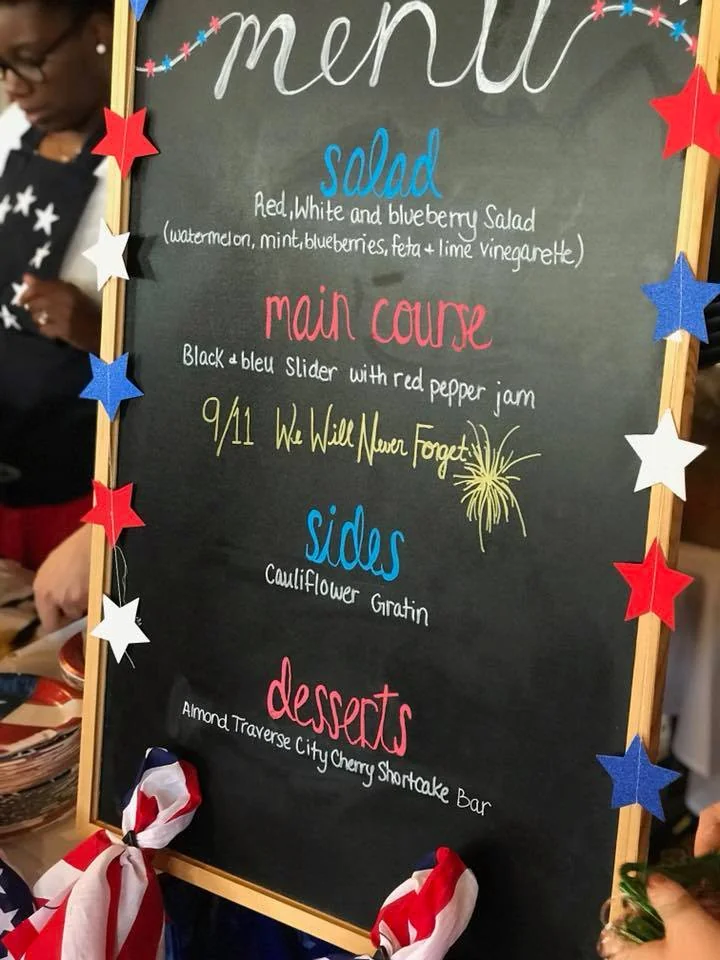 menu
salad
Red, White and blueberry Salad
(watermelon, mint, blueberries, feta + lime vinegarette)
main course
Black & bleu Slider with red pepper jam
9/11 We Will Never Forget
sides
Cauliflower Gratin
desserts
Almond Traverse City Cherry Shortcake Bar